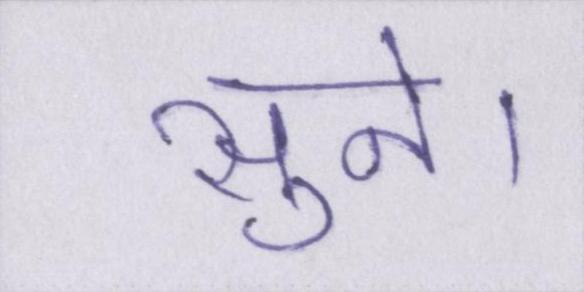 सुने।